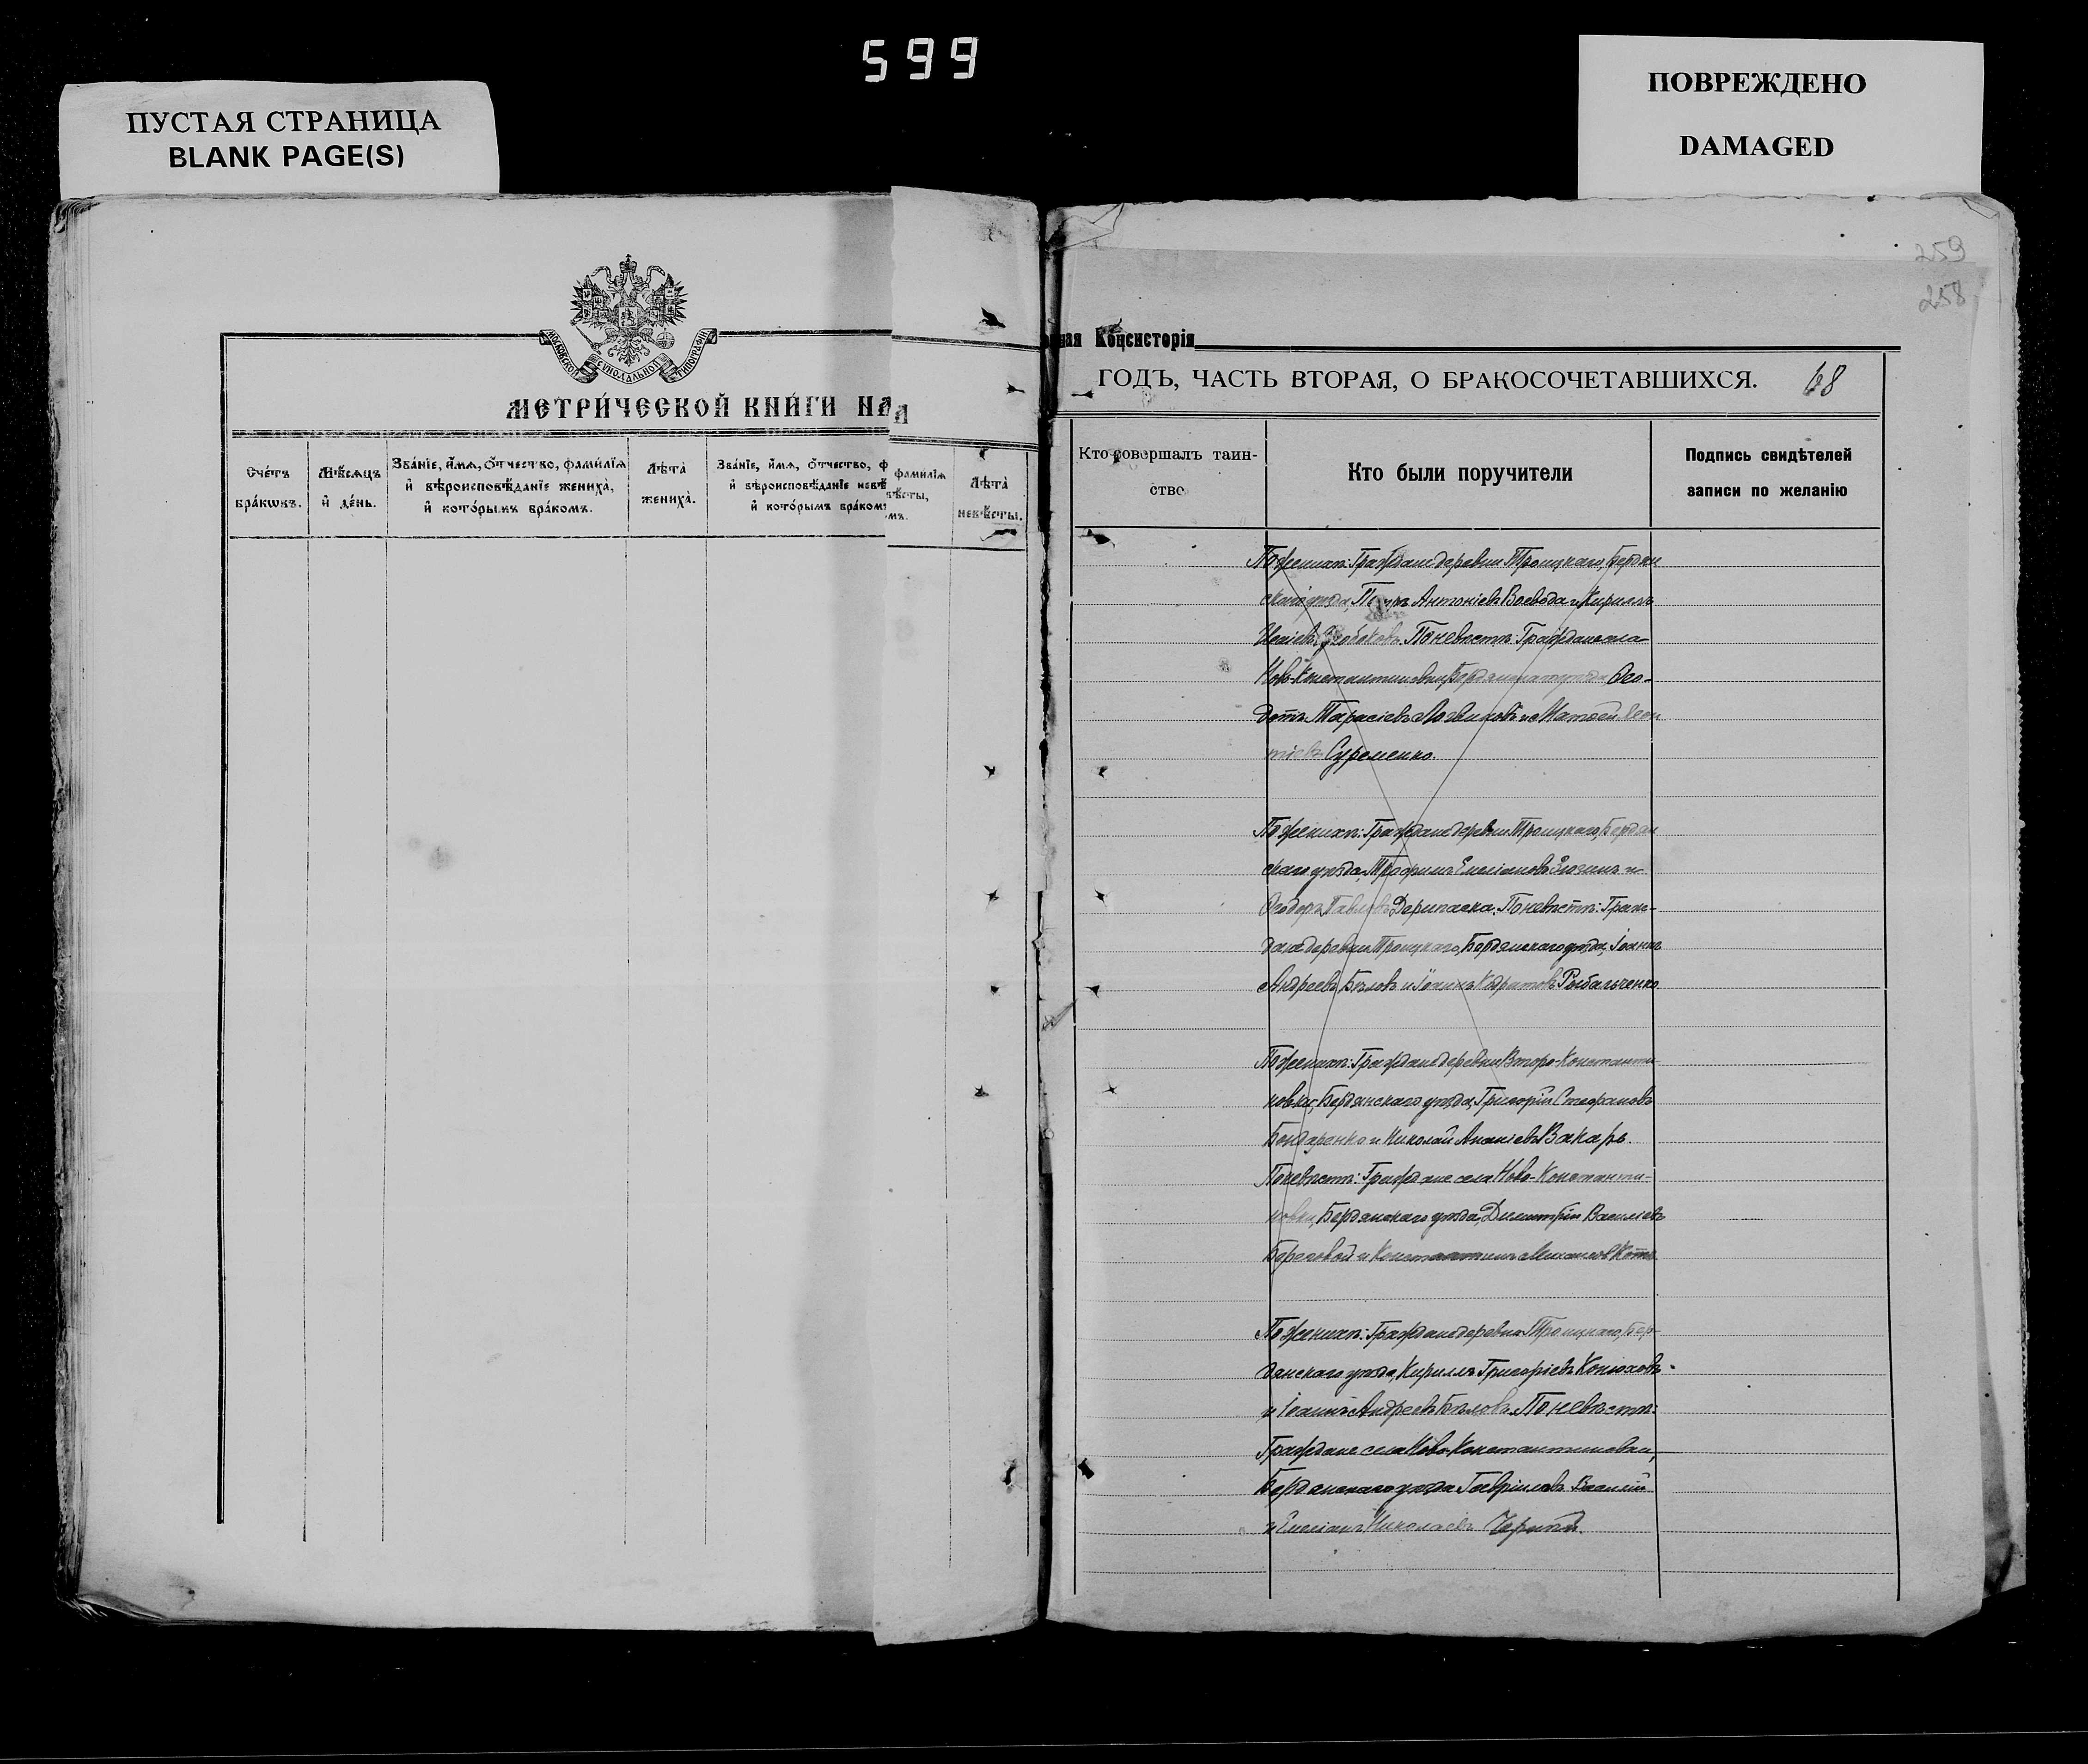 599
ПУСТАЯ СТРАНИЦА
BLANK PAGE(S)
ПОВРЕЖДЕНО
DAMAGED
259
258
МОСКОВСКОЙ СѴНОДАЛЬНОЙ ТИПОГРАФІИ
МЕТРИ́ЧЕСКОЙ КНИ́ГИ НА
Сче́тъ бра́кѡвъ.
Мѣ́сѧцъ и҆ де́нь.
Зва́нїе, и҆́мѧ, ѻ҆́тчество, фами́лїѧ и҆ вѣроисповѣ́данїе жениха̀, и҆ кото́рымъ бра́комъ.
Лѣта̀ жениха̀.
Зва́нїе, и҆́мѧ, ѻ҆́тчество, ф
и҆ вѣроисповѣ́данїе невѣ
и҆ кото́рымъ бра́комъ
фами́лїѧ
вѣ́сты,
мъ.
Лѣта̀ невѣ́сты.
ная Консисторія
ГОДЪ, ЧАСТЬ ВТОРАЯ, О БРАКОСОЧЕТАВШИХСЯ. 68
Кто совершалъ таин-
ство
Кто были поручители
Подпись свидѣтелей
записи по желанію
По женихѣ: Граждане деревни Троицкаго, Бердян
скаго уѣзда, Антоніевъ Воевода и Кириллъ
По невѣстѣ: Граждане села
Ново-Константиновки, Бердянскаго уѣзда Ѳео-
дотъ Тарасіевъ Логвиновъ и Матѳей Леон
тіевъ Суременко.
По женихѣ: Граждане деревни Троицкаго, Бердян
скаго уѣзда, Трофимъ Емеліановъ и
Ѳеодоръ Павловъ Дерипаска. По невѣстѣ: Граж-
дане деревни Троицкаго, Бердянскаго уѣзда, Іоаннъ
Андреевъ Бѣловъ и Іоаннъ Рыбальченко
По женихѣ: Граждане деревни Второ-Константи-
новки, Бердянскаго уѣзда, Григорій Стефановъ
Бондаренко и Николай Ананіевъ Вакарь.
По невѣстѣ: Граждане села Ново-Константи-
новки, Бердянскаго уѣзда, Димитрій Василіевъ
Береговой и Константинъ Михаиловъ
По женихѣ: Граждане деревни Троицкаго, Бер-
дянскаго уѣзда, Кириллъ Григоріевъ Конюховъ
и Іоаннъ Андреевъ Бѣловъ. По невѣстѣ:
Граждане села Ново-Константиновки,
Бердянскаго уѣзда Гавріиловъ Василій
и Емеліанъ Николаевъ